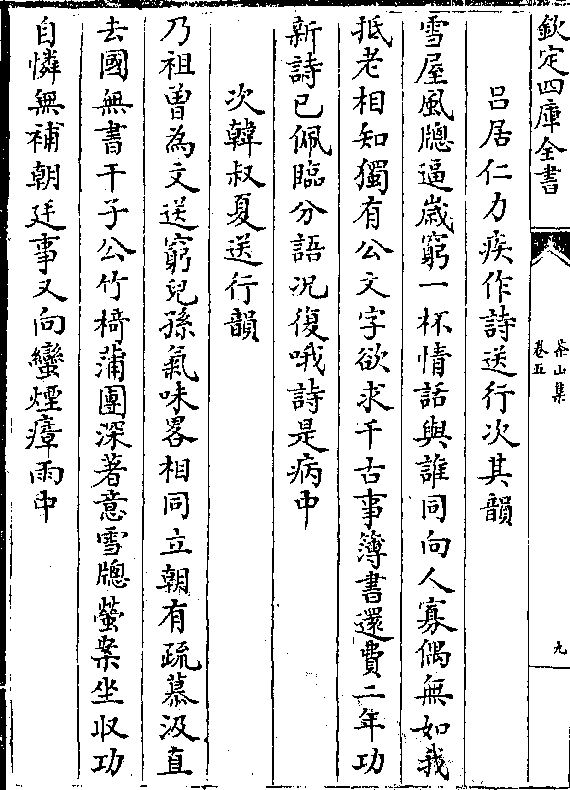 欽定四庫全書
茶山集
卷五
九
吕居仁力疾作詩送行次其韻
雪屋風牕逼歲窮一杯情話與誰同向人寡偶無如我
抵老相知獨有公文字欲求千古事簿書還費二年功
新詩已佩臨分語况復哦詩是病中
次韓叔夏送行韻
乃祖曽為文送窮兒孫氣味畧相同立朝有疏慕汲直
去國無書干子公竹椅蒲團深著意雪牕螢案坐収功
自憐無補朝廷事又向蠻煙瘴雨中